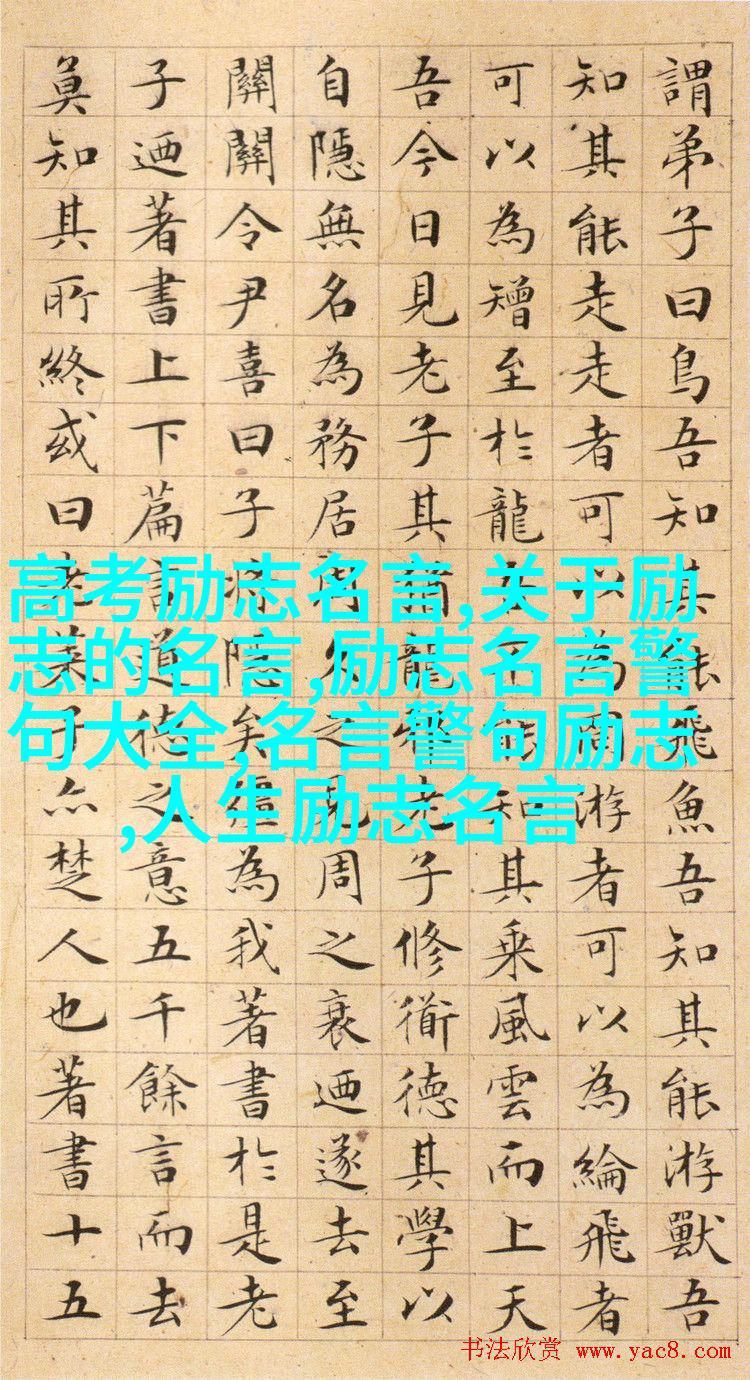 謂弟子曰鳥吾知其能飛魚吾知其能游獸吾
知其能走走者可以為罔游者可以為綸飛者
可以為矰至於龍吾不能知其乗風雲而上天
吾今日見老子其猶龍邪老子修衜德其學以
自隱無名為務居周久之見周之衰迺遂去至
關關令尹喜曰子將隱矣彊為我著書於是老
子迺著書上下篇言道德之意五千餘言而去
莫知其所終或曰老萊子亦楚人也著書十五
高考励志名言,关于励
志的名言,励志名言警
句大全,名言警句励志
,人生励志名言
书法欣赏 www.yac8.com